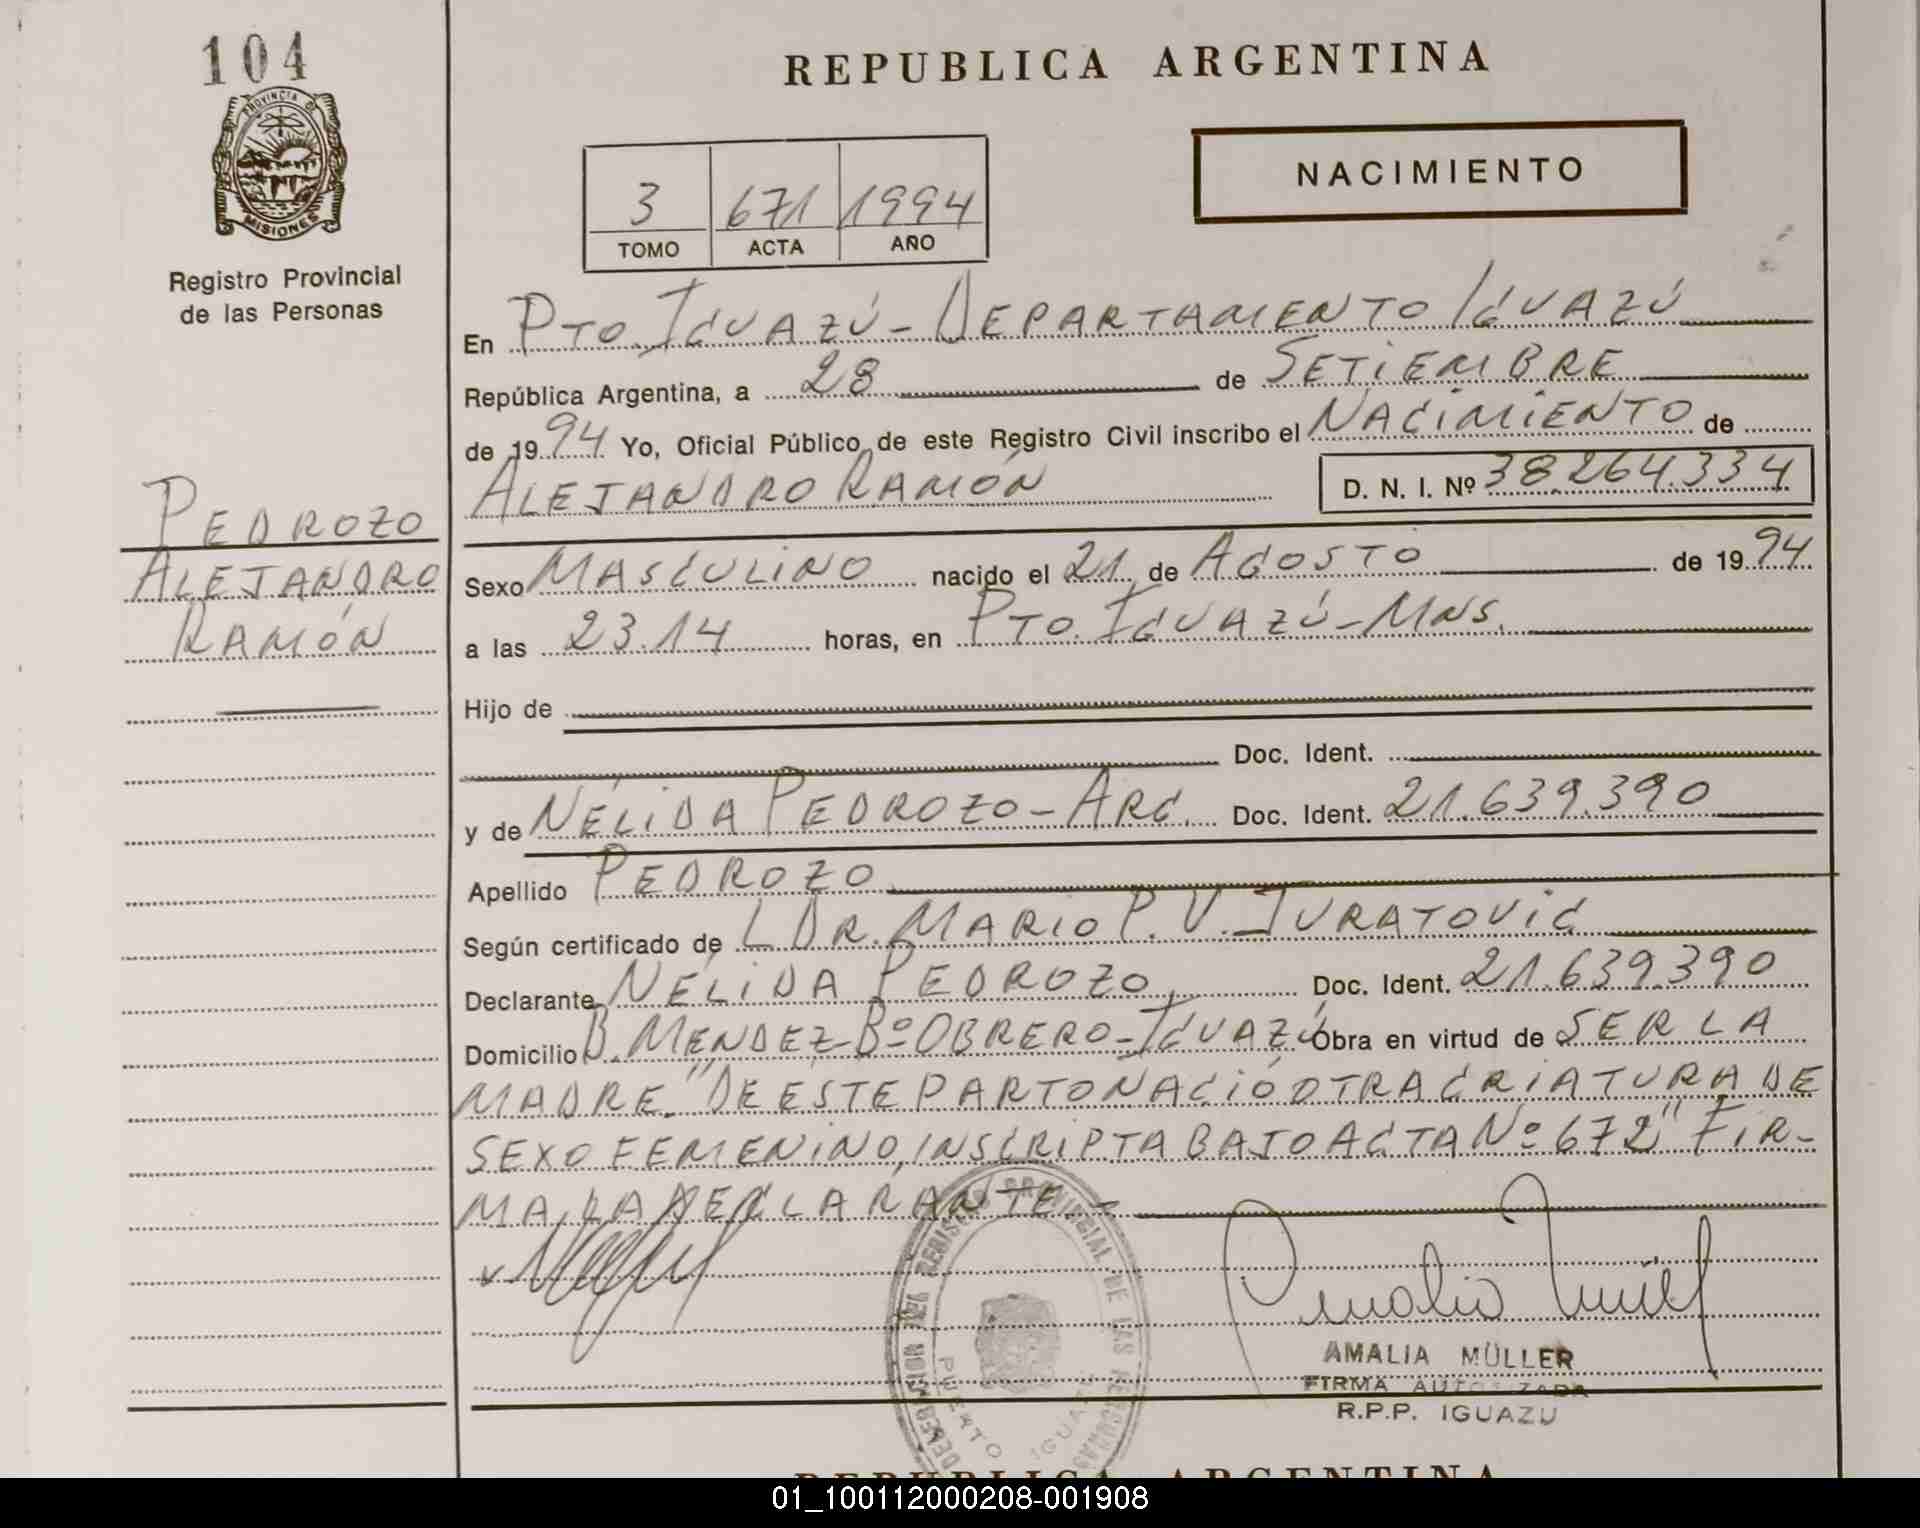 104
PROVINCIA DE
MISIONES
Registro Provincial
de las Personas
PEDROZO
ALEJANDRO
RAMÓN
REPUBLICA ARGENTINA
NACIMIENTO
3 671 1994
TOMO ACTA AÑO
En PTO. IGUAZÚ - DEPARTAMENTO IGUAZÚ
República Argentina, a 28 de SETIEMBRE
de 1994 Yo, Oficial Público de este Registro Civil inscribo el NACIMIENTO de
ALEJANDRO RAMÓN D. N. I. Nº 38.264.334
Sexo MASCULINO nacido el 21 de AGOSTO de 1994
a las 23.14 horas, en PTO. IGUAZÚ - MNS.
Hijo de
Doc. Ident.
y de NÉLIDA PEDROZO - ARG. Doc. Ident. 21.639.390
Apellido PEDROZO
Según certificado de L DR. MARIO P. V. JURATOVIC
Declarante NÉLIDA PEDROZO, Doc. Ident. 21.639.390
Domicilio B. MENDEZ - Bº OBRERO - IGUAZÚ Obra en virtud de SER LA
MADRE. "DE ESTE PARTO NACIÓ OTRA CRIATURA DE
SEXO FEMENINO, INSCRIPTA BAJO ACTA Nº 672" FIR-
MA, LA DECLARANTE. -
REGISTRO PROVINCIAL DE LAS PERSONAS
PUERTO IGUAZU
Amalia Müller
AMALIA MÜLLER
FIRMA AUTORIZADA
R.P.P. IGUAZU
REPUBLICA ARGENTINA
01_100112000208-001908